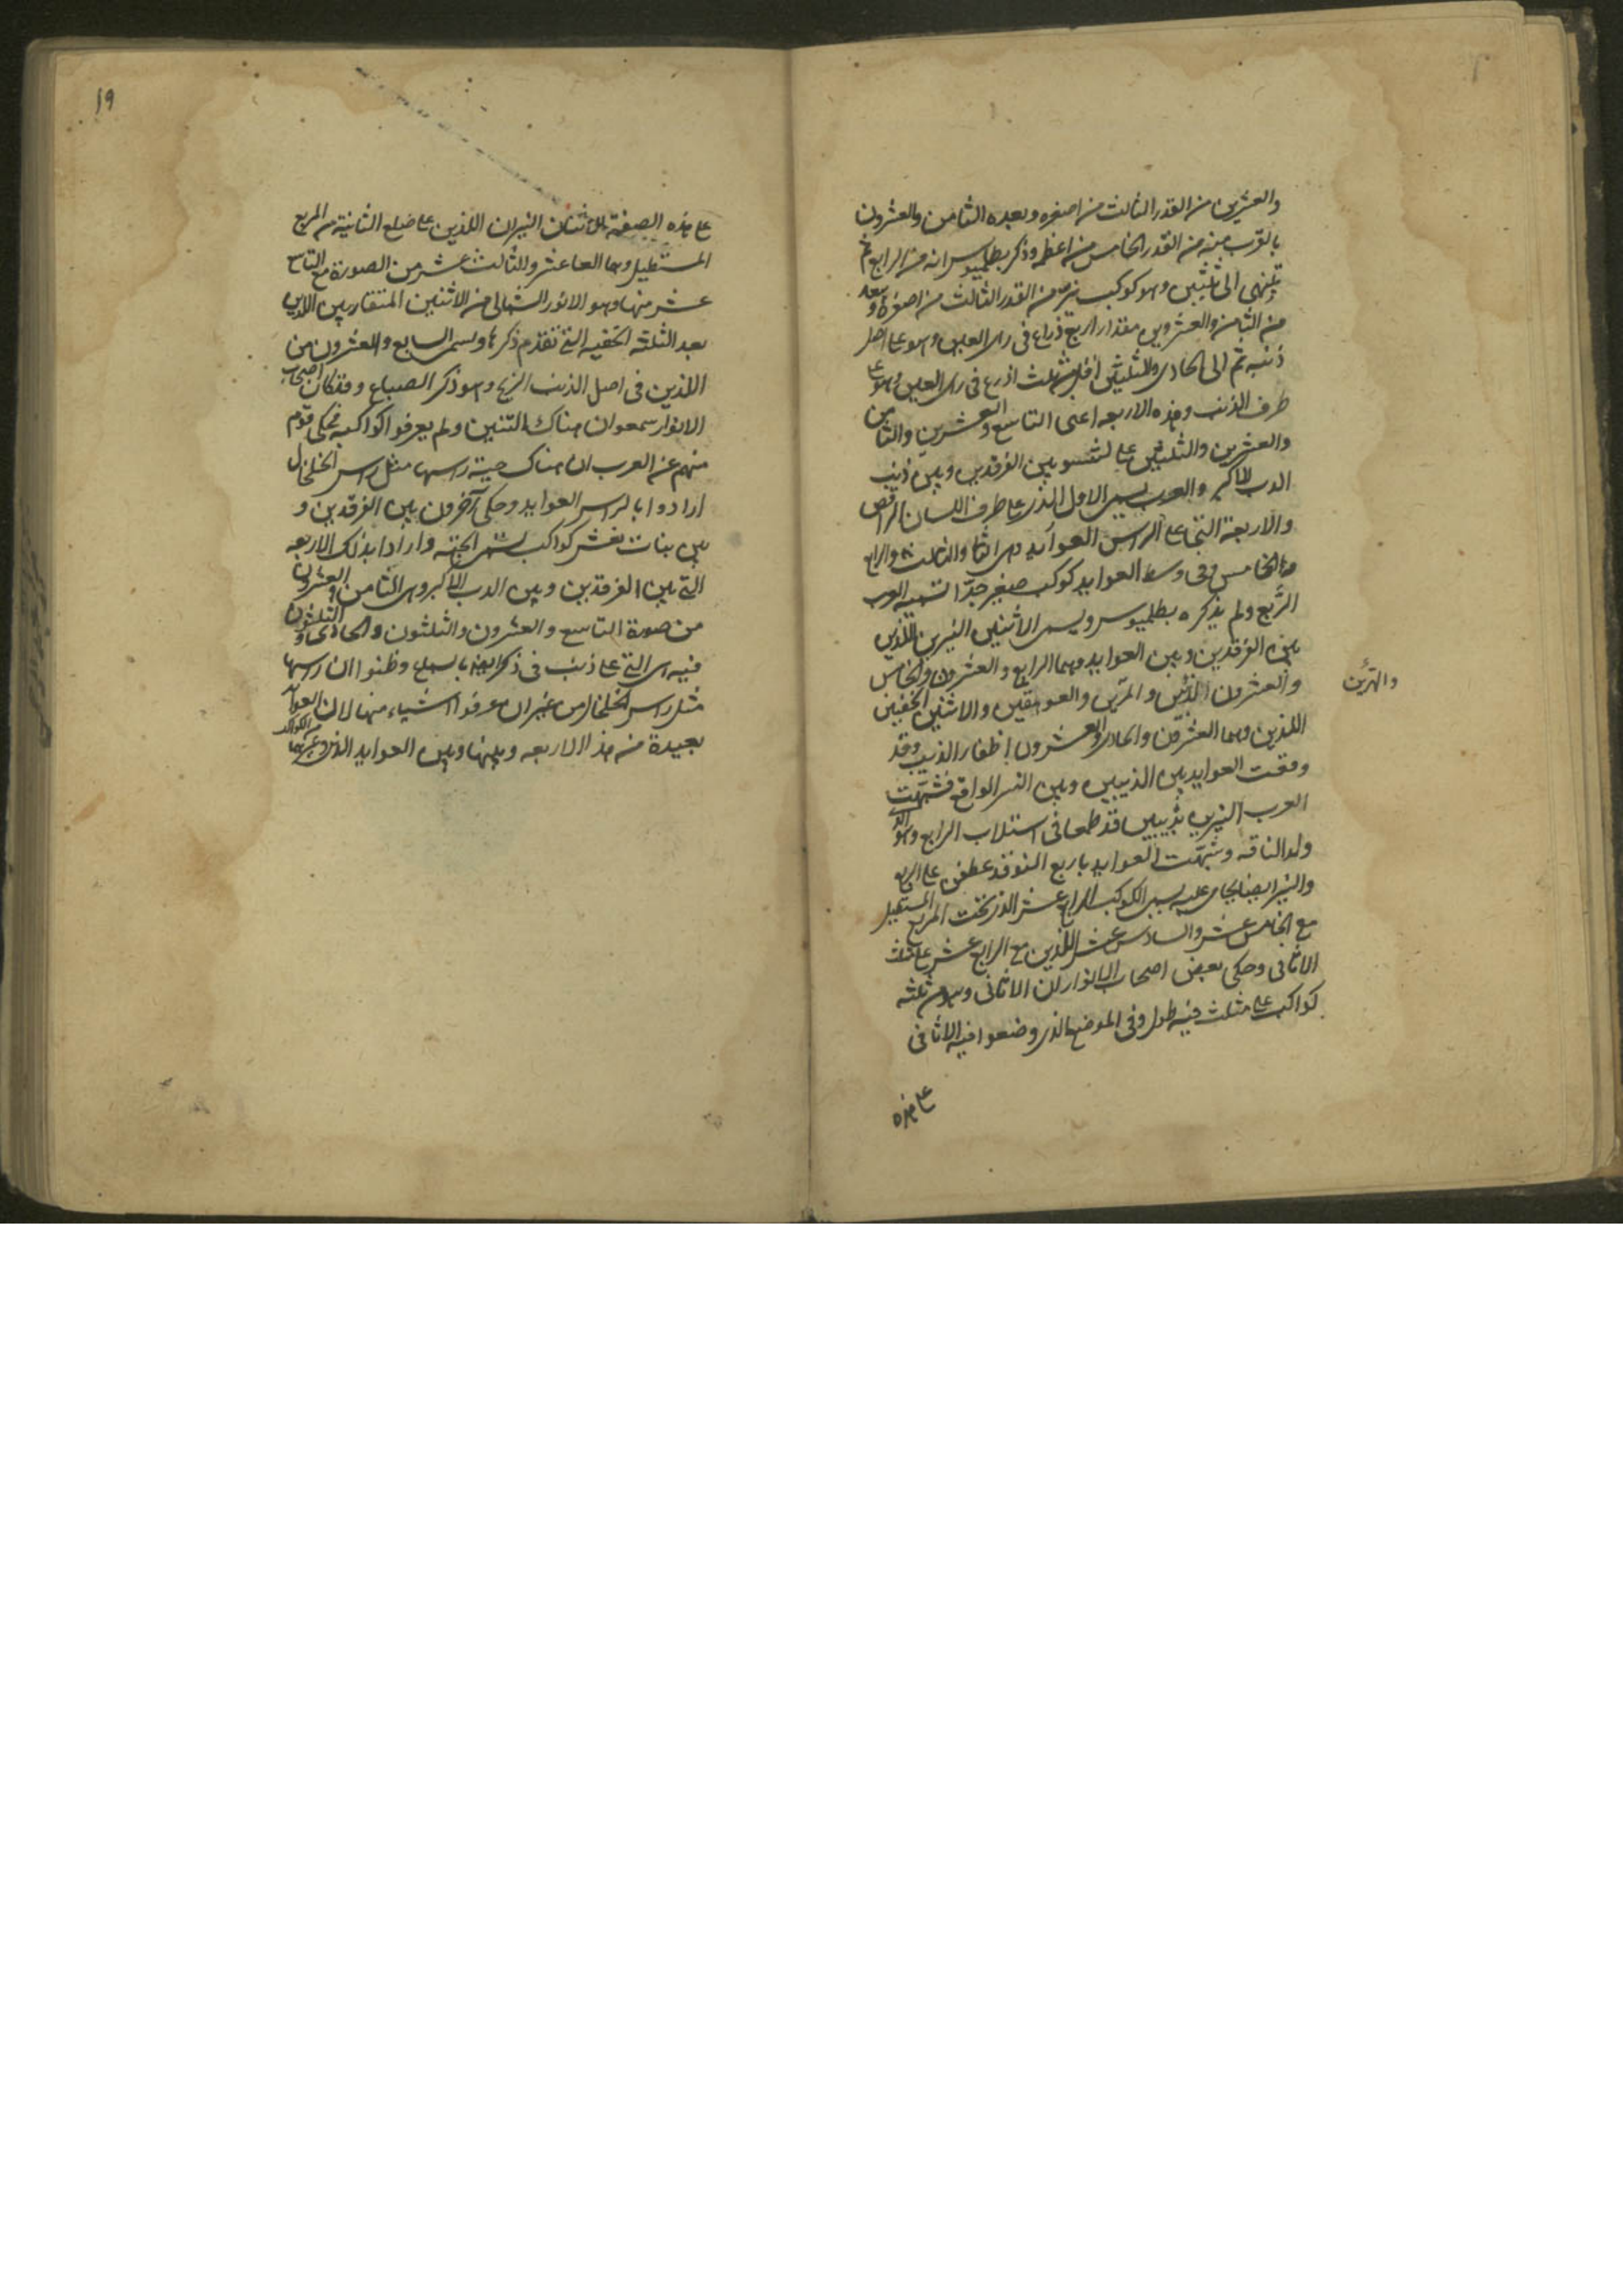 والعشرين من القدر الثالث من اصغره وبعده الثامن والعشرون
بالقرب منه من القدر الخامس من اعظمه وذكر بطلميوس انه من الرابع ثم
ينتهى الى ثلثين وهو كوكب نير من القدر الثالث من اصغره وبعده
من الثامن والعشرين مقدار اربع ذراع فى راى العين وهو على اصل
ذنبه ثم الى الحادى والثلثين اقل من ثلث اذرع فى راى العين وهو على
طرف الذنب وهذه الاربعه اعنى التاسع والعشرين والثامن
والعشرين والثلثين على تقسو بين الفرقدين وبين ذنب
الدب الاكبر والعرب يسمى الاول الذى على طرف اللسان الراقص
والاربعة التى على الراس العوايد وهى الثانى والثالث والرابع
والخامس وفى وسط العوايد كوكب صغير جدّا تسميه العرب
الرُّبع ولم يذكره بطلميوس ويسمى الاثنين النيرين اللذين
بين الفرقدين وبين العوايد وهما الرابع والعشرون والخامس
والعشرون الذئبين والحرّين والعوهقين والاثنين الخفيين
والهرّين
اللذين وهما العشرون والحادى والعشرون اظفار الذئب وقد
وقعت العوايد بين الذئبين وبين النسر الواقع فشبّهت
العرب النيرين بذئبين قد طمعا فى استلاب الرابع وهو
ولد الناقه وشبّهت العوايد باربع اينق قد عطفن على الربع
والنير ايضا يحامى عليه يسمى الكوكب الرابع عشر الذى تحت المربع المستطيل
مع الخامس عشر والسادس عشر اللذين مع الرابع عشر على مثلث
الاثافى وحكى بعض اصحاب الانوار ان الاثافى وهى ثلثه
كواكب على مثلث فيه طول وفى الموضع الذى وضعوا فيه الاثافى
على هذه
19
على هذه الصفة الاثنان النيران اللذين على ضلع الثانية من المربع
المستطيل وهما العاشر والثالث عشر من الصورة مع التاسع
عشر منها وهو الانور الشمالى من الاثنين المتقاربين اللذين
بعد الثلثه الخفيه التى تقدم ذكرها ويسمى السابع والعشرون من
اللذين فى اصل الذنب الذيخ وهو ذكر الضباع وقد كان اصحاب
الانوار سمعوا ان هناك التنين ولم يعرفوا كواكبه فحكى قوم
منهم عن العرب ان هناك حيّة راسها مثل راس الخلخال
ارادوا بالراس العوايد وحكى آخرون بين الفرقدين و
بين بنات نعش كواكب يسمى الحيّة وارادا بذلك الاربعه
التى بين الفرقدين وبين الدب الاكبر وهى الثامن والعشرون
من صورة التاسع والعشرون والثلثون والحادى والثلثون
فيه هى التى على ذنب وظنوا ان راسها
مثل راس الخلخال من غير ان عرفوا اشياء منها لان العوايد
بعيدة من هذا الاربعه وبينها وبين العوايد الذى من الكواكب